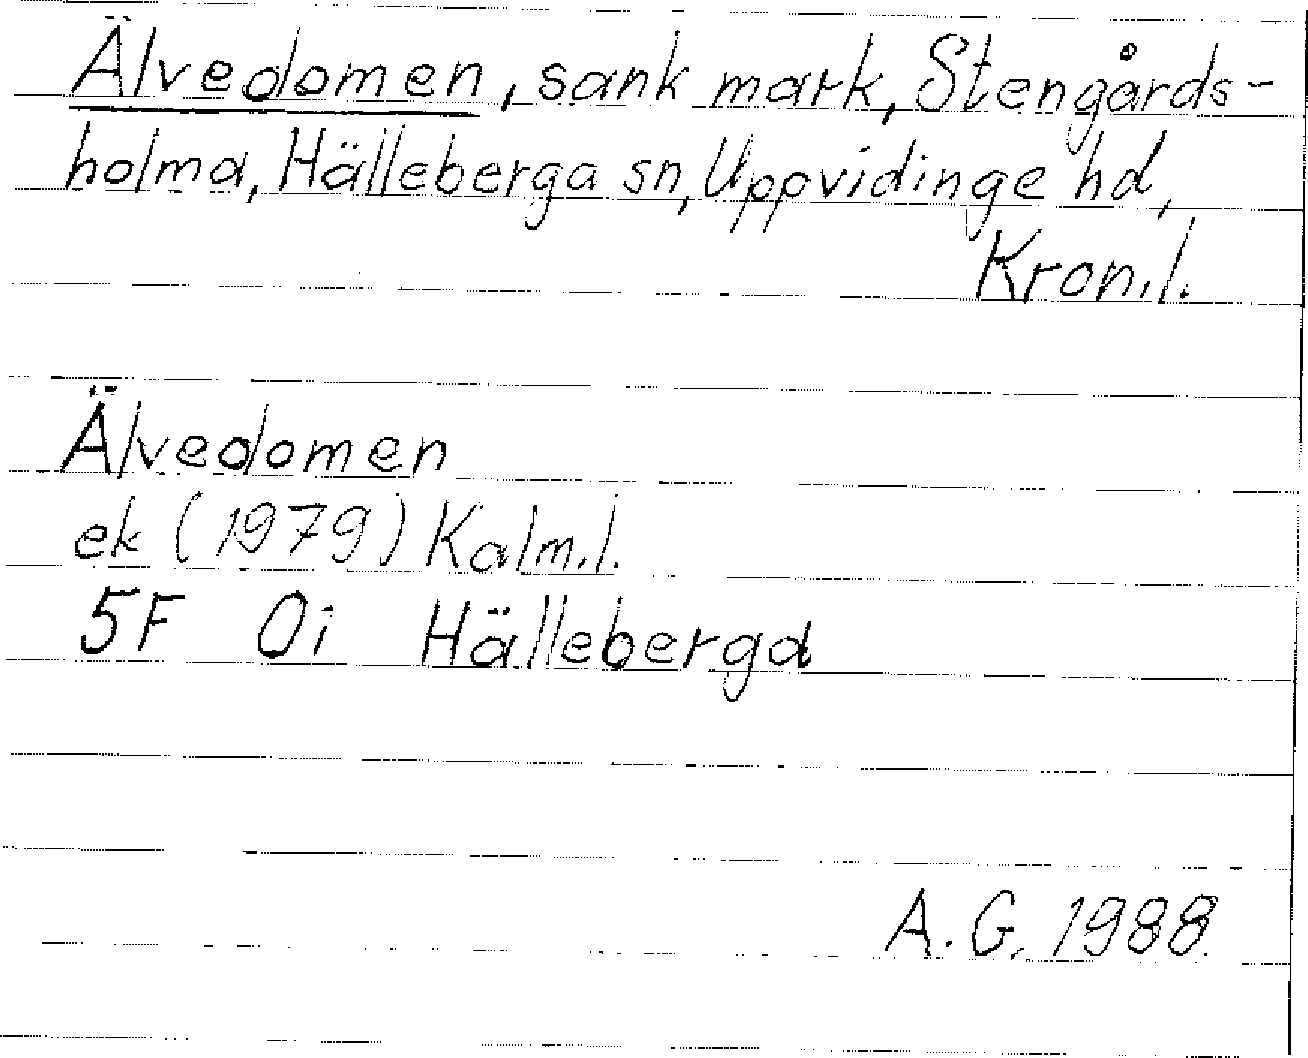 Älvedomen, sank mark, Stengårds-
holma, Hälleberga sn, Uppvidinge hd,
Kron.l.
Älvedomen
ek (1979) Kalm.l.
5F 0i Hälleberga
A.G. 1988.